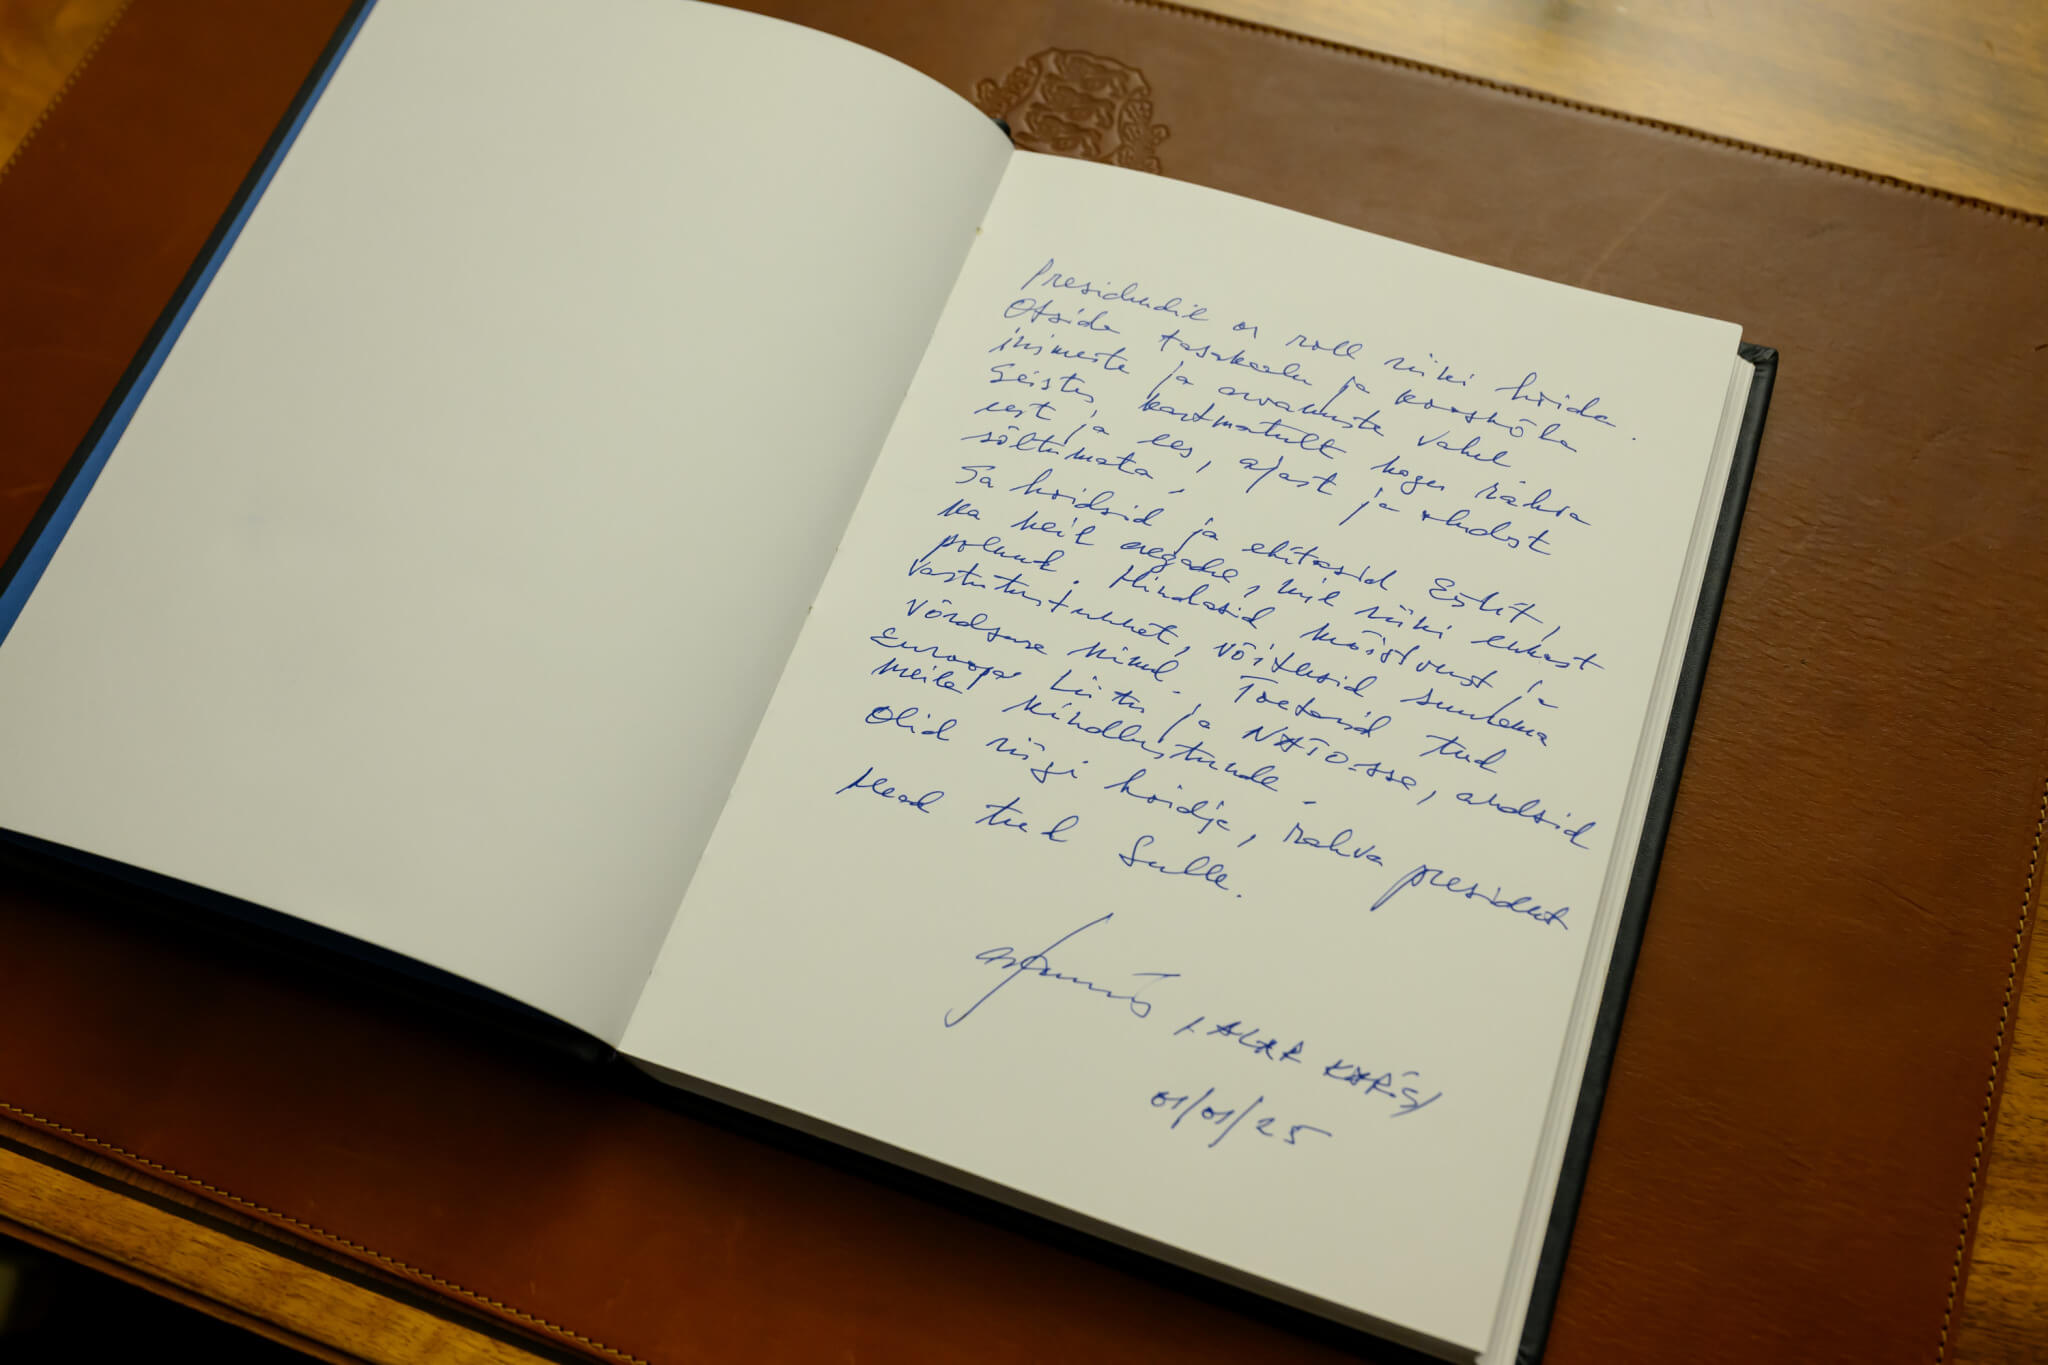 Presidendil on roll riiki hoida.
Otsida tasakaalu ja kooskõla
inimeste ja arvamuste vahel
Seistes kartmatult kogu rahva
eest ja ees, ajast ja
sõltumata.
Sa hoidsid ja ehitasid Eestit,
ka neil aegadel, mil riiki ennast
polnud. Hindasid mõistvust ja
vastutustunnet, võitlesid suutma
võrdsuse nimel. Toetasid teed
Euroopa Liitu ja NATO-sse, andsid
meile kindlustunde.
Olid riigi hoidja, rahva president
Head teed Sulle.
/ALAR KARIS/
01/01/25